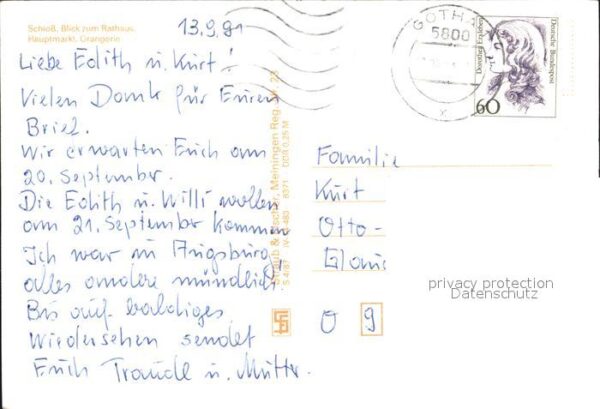 Schloß, Blick zum Rathaus,
Hauptmarkt, Orangerie
13.9.91
Liebe Edith u. Kurt!
Vielen Dank für Euren
Brief.
Wir erwarten Euch am
20. September.
Die Edith u. Willi wollen
am 21. September kommen
Ich war in Augsburg
alles andere mündlich!
Bis auf baldiges
Wiedersehen sendet
Euch Traudl u. Mutter.
Meiningen Reg.
DDR 0,25 M
GOTHA
5800
x
Dorothea Erxleben
Deutsche Bundespost
60
Familie
Kurt
Otto-
O 9
privacy protection
Datenschutz